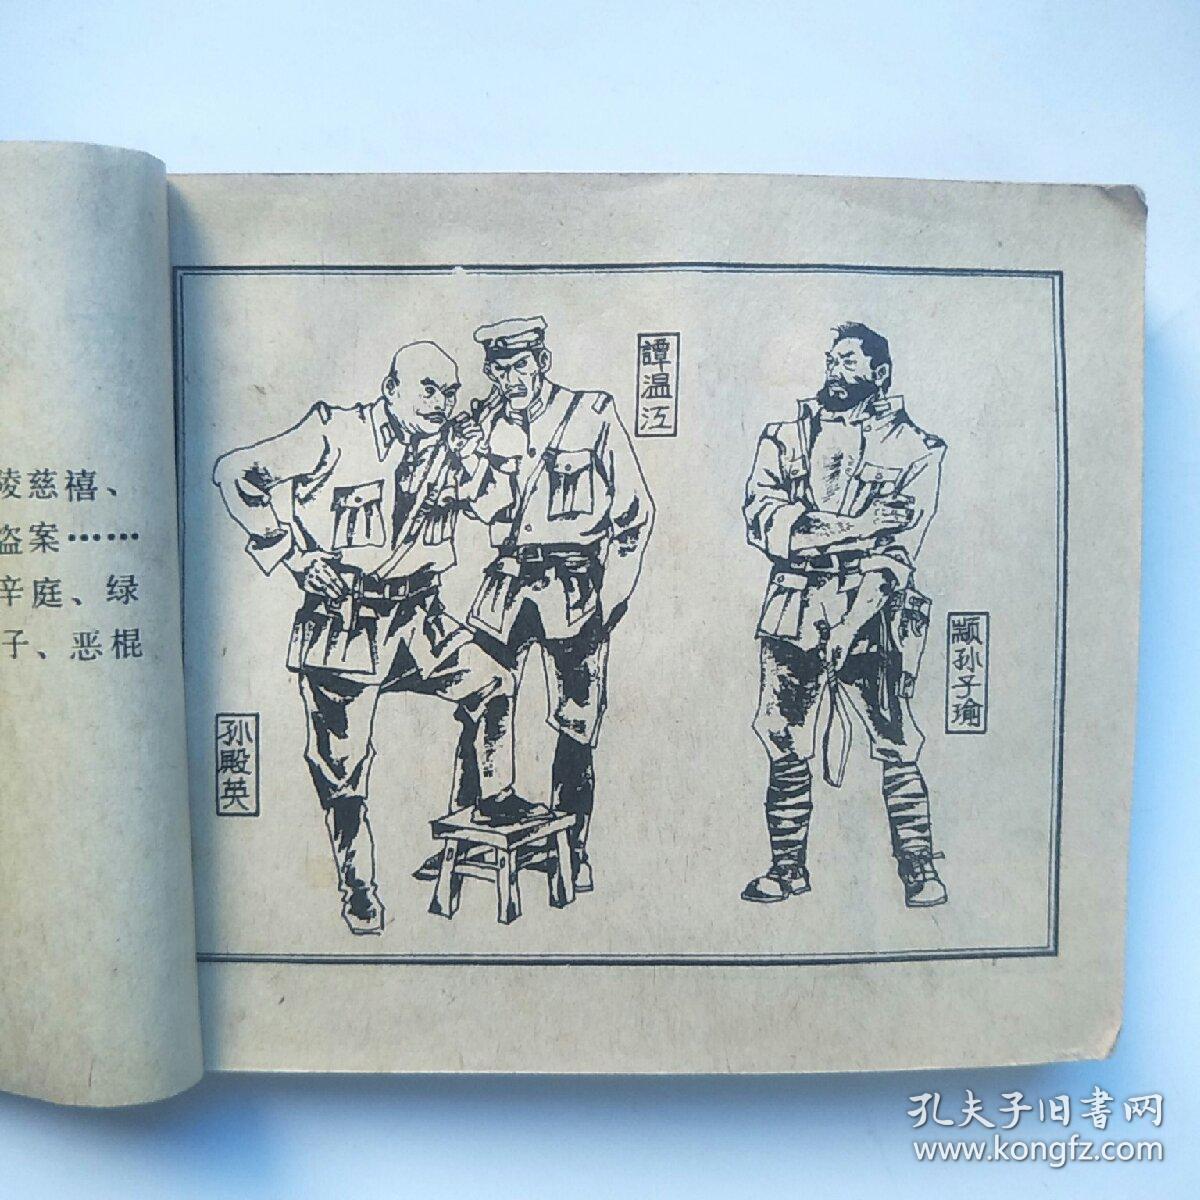 陵慈禧、
盗案……
辛庭、绿
子、恶棍
孙殿英
譚温江
颛孙子瑜
孔夫子旧書网
www.kongfz.com